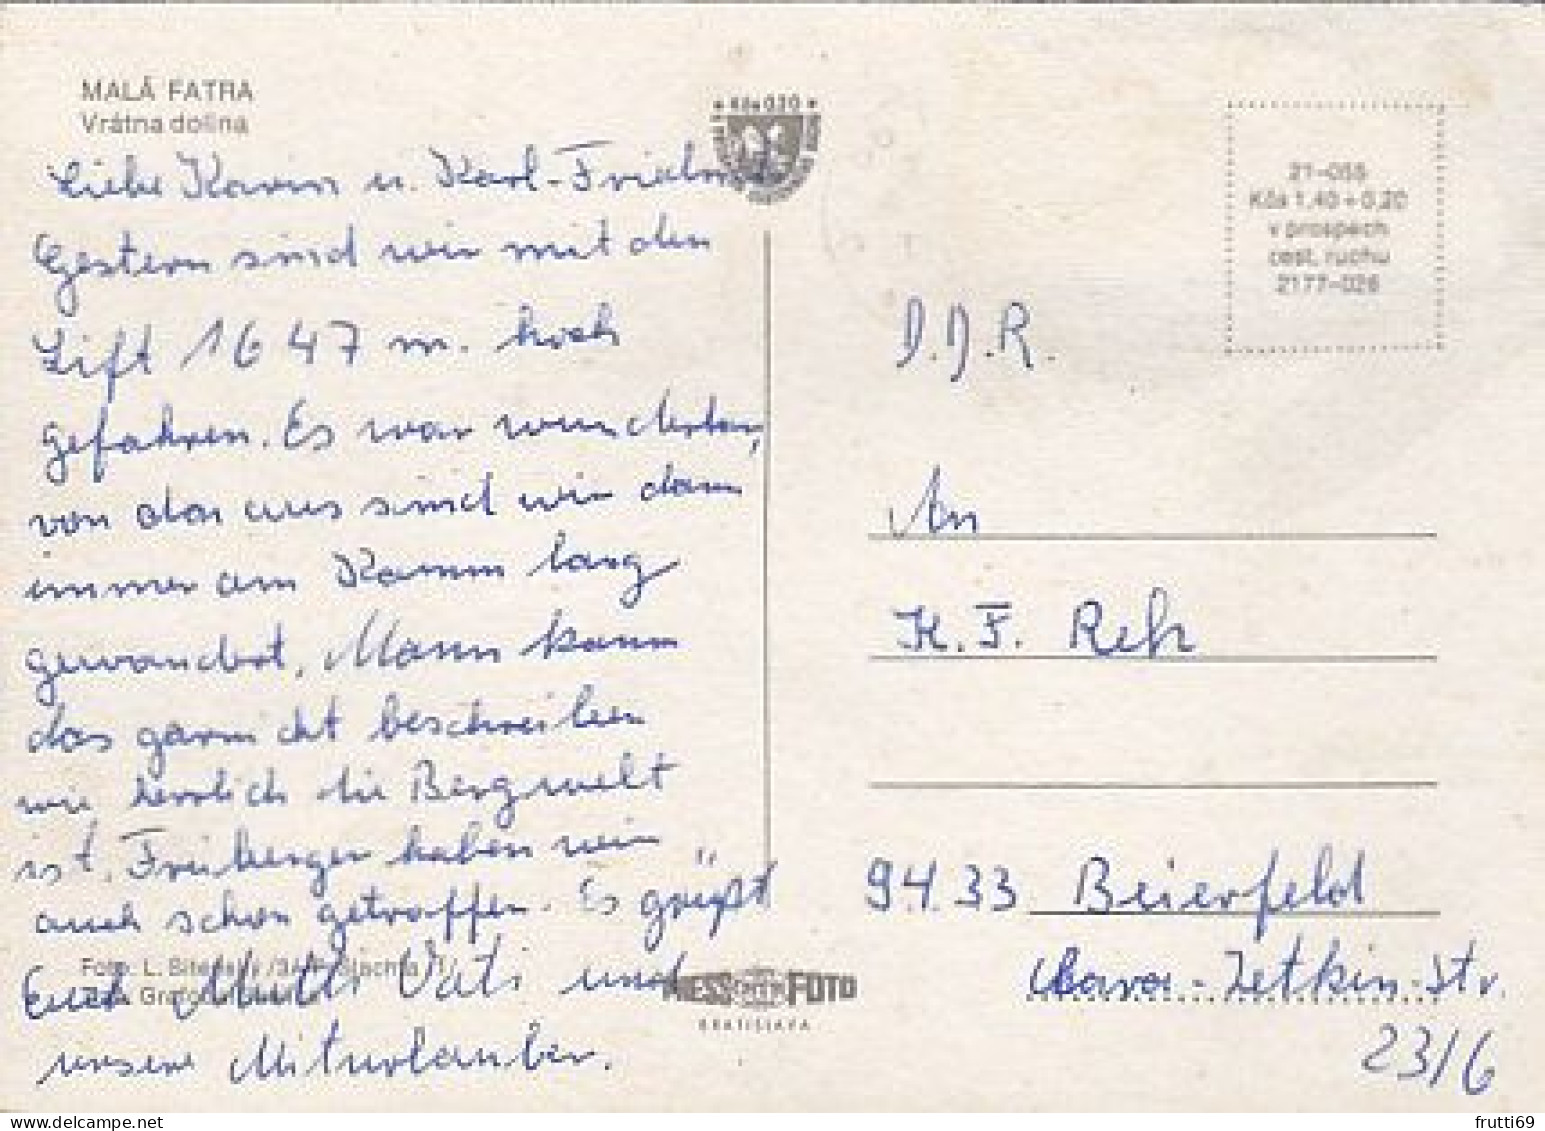 MALÁ FATRA
Vrátna dolina
Kčs 0,20
Liebe Karin u. Karl-Friedrich
Gestern sind wir mit den
Lift 1647 m. hoch
gefahren. Es war wunderbar,
von da aus sind wir dann
immer am Kamm lang
gewandert. Mann kann
das garnicht beschreiben
wie herrlich die Bergwelt
ist. Freiberger haben wir
auch schon getroffen. Es grüßt
Euch Mutti Vati und
unsere Miturlauber.
Foto: L.
PRESSFOTO
BRATISLAVA
21-055
Kčs 1,40 + 0,20
v prospech
cest. ruchu
2177-026
D.D.R.
An
K. F. Reh
9433 Beierfeld
Clara-Zetkin-Str.
23/6
frutti69